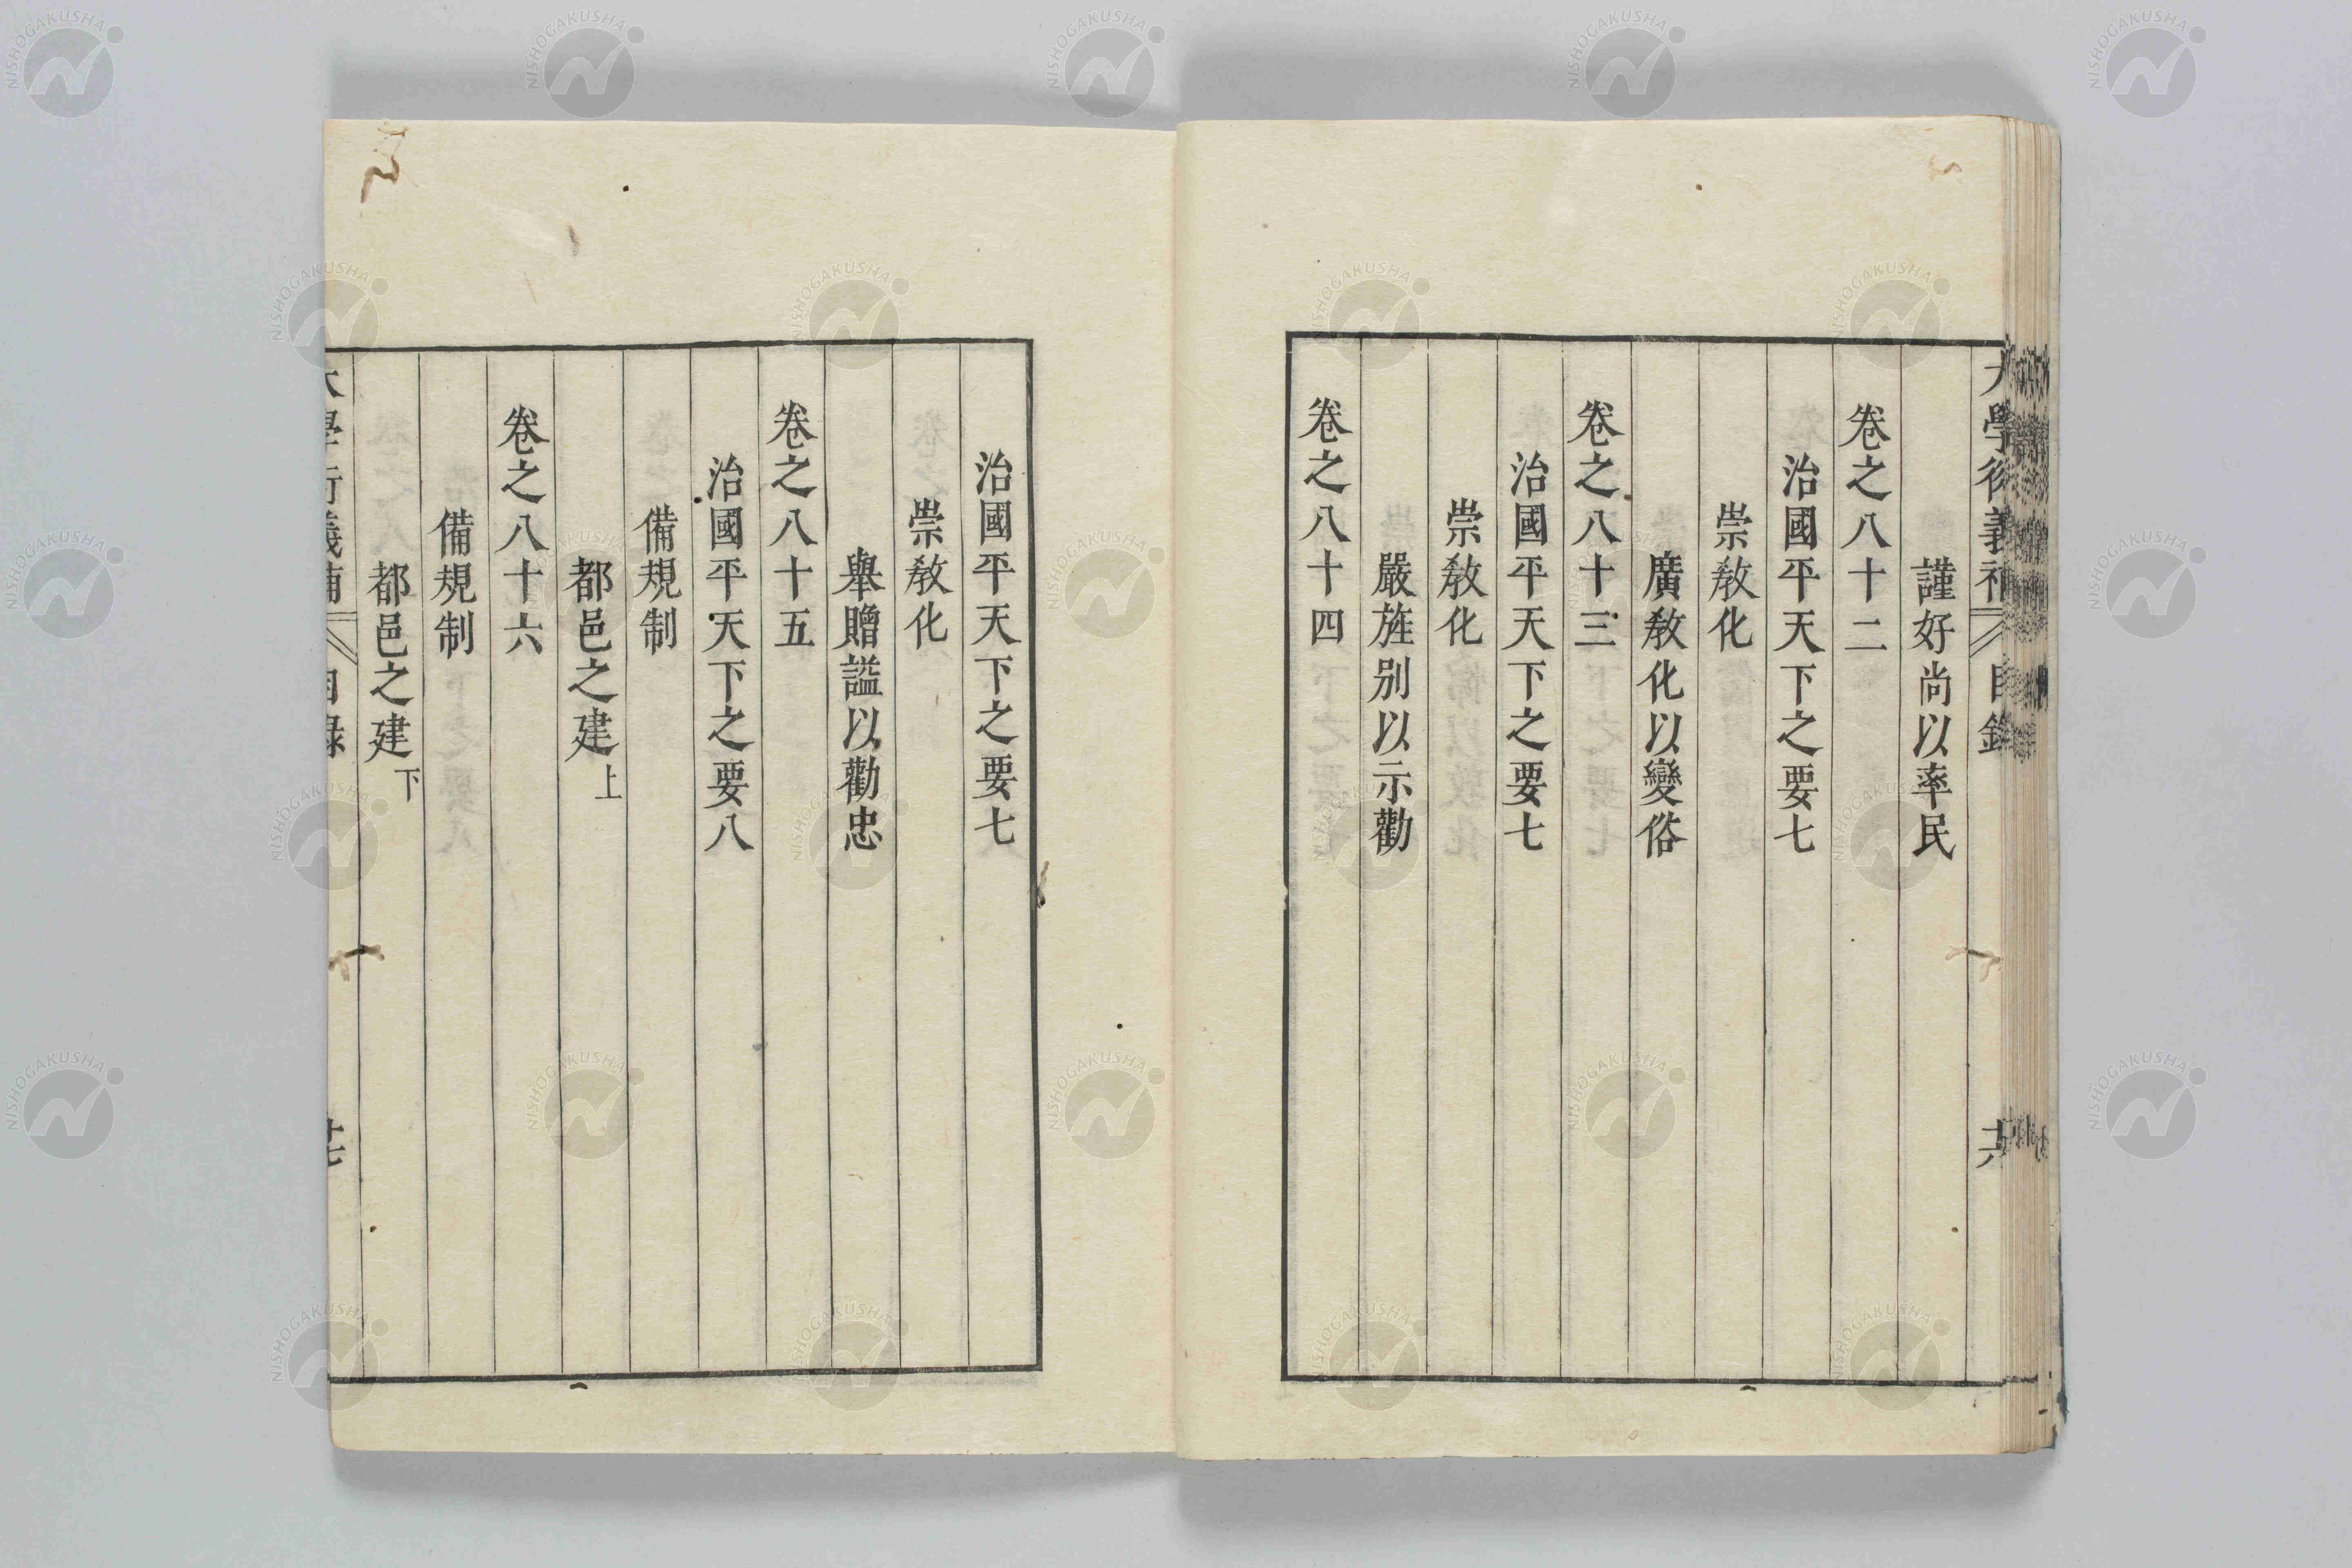 謹好尚以率民
卷之八十二
治國平天下之要七
崇敎化
廣敎化以變俗
卷之八十三
治國平天下之要七
崇敎化
嚴旌别以示勸
卷之八十四
治國平天下之要七
崇敎化
舉贈謚以勸忠
卷之八十五
治國平天下之要八
備規制
都邑之建上
卷之八十六
備規制
都邑之建下
NISHOGAKUSHA